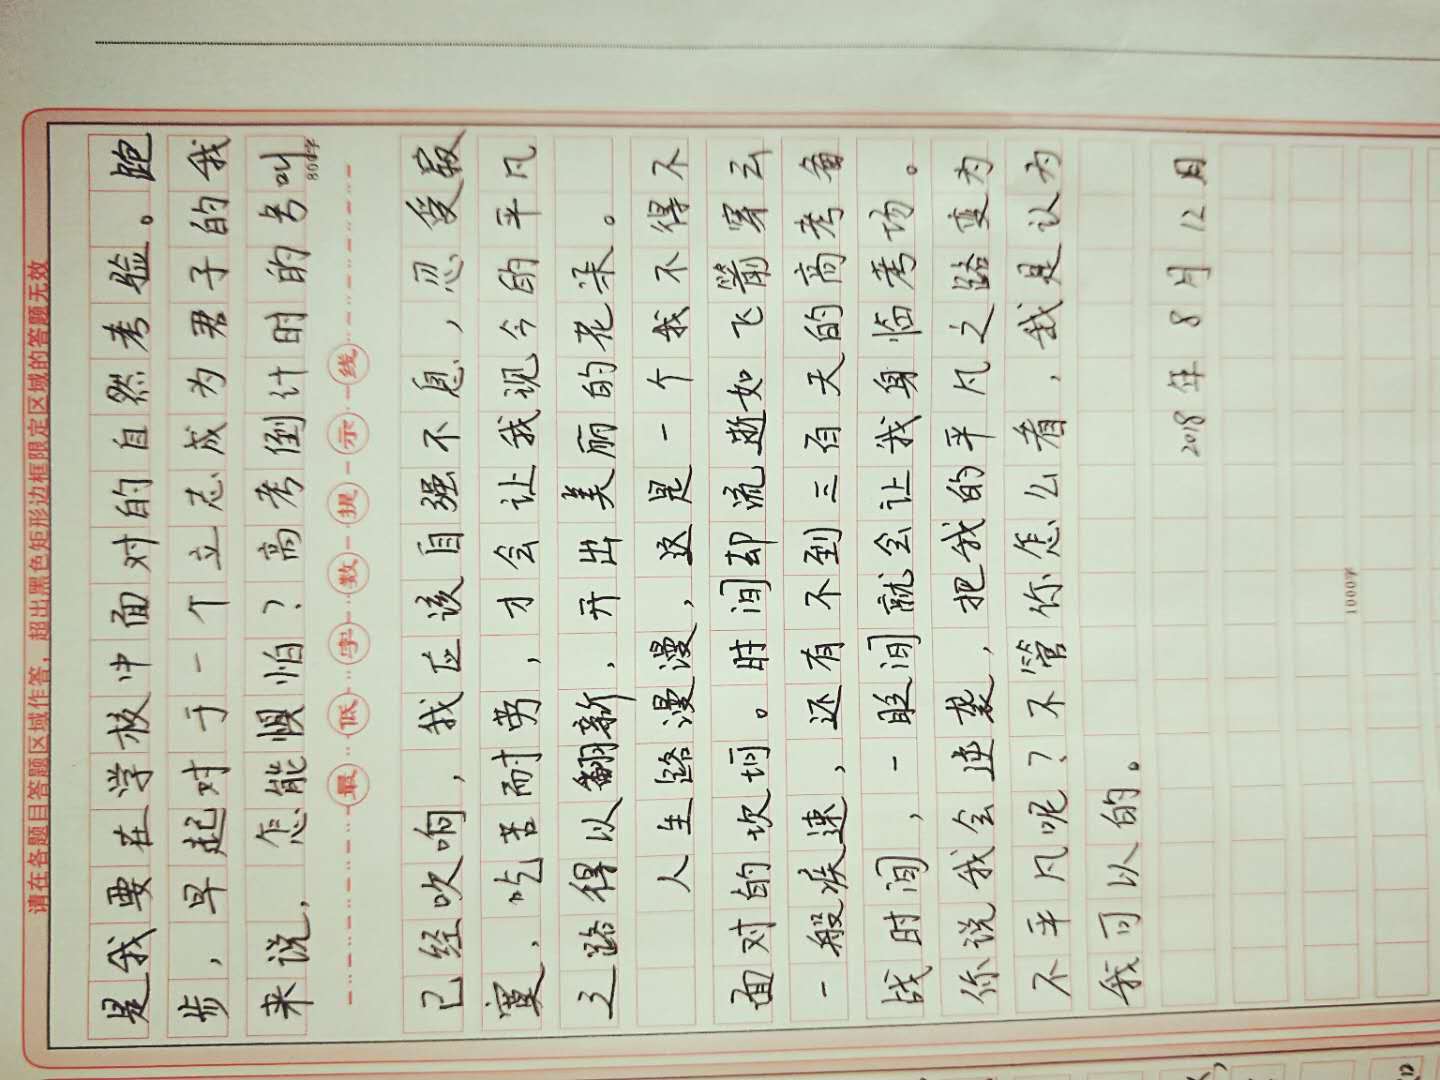 请在各题目答题区域作答，超出黑色矩形边框限定区域的答题无效
是我要在学校中面对的自然考验。跑
步，早起对于一个立志成为君子的我
来说，怎能惧怕？高考倒计时的号叫
800字
最低字数提示线
已经吹响，我应该自强不息，忍受寂
寞，吃苦耐劳，才会让我现今的平凡
之路得以翻新，开出美丽的花朵。
人生路漫漫，这是一个我不得不
面对的坎坷。时间却流逝如飞箭穿云
一般疾速，还有不到三百天的高考备
战时间，一眨间就会让我身临考场。
你说我会逆袭，把我的平凡之路变为
不平凡呢？不管你怎么看，我是认为
我可以的。
2018年8月12月
1000字